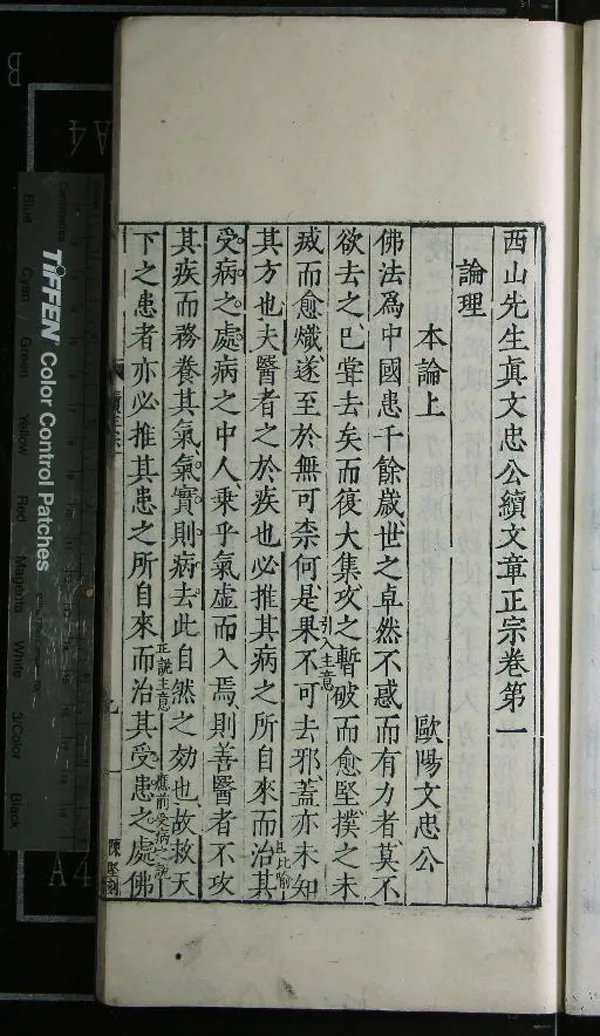 西山先生眞文忠公續文章正宗卷第一
論理
本論上 歐陽文忠公
佛法爲中國患千餘歲世之卓然不惑而有力者莫不
欲去之已甞去矣而復大集攻之暫破而愈堅撲之未
滅而愈熾遂至於無可柰何是果不可去邪蓋亦未知
引入主意
其方也夫醫者之於疾也必推其病之所自來而治其
且比喻
受病之處病之中人乗乎氣虛而入焉則善醫者不攻
其疾而務養其氣氣實則病去此自然之効也故救天
正說主意
應前受病之說
下之患者亦必推其患之所自來而治其受患之處佛
陳堅刻
TIFFEN Color Control Patches
Blue
Cyan
Green
Yellow
Red
Magenta
White
3/Color
Black
Centimetres
A4
A4
B